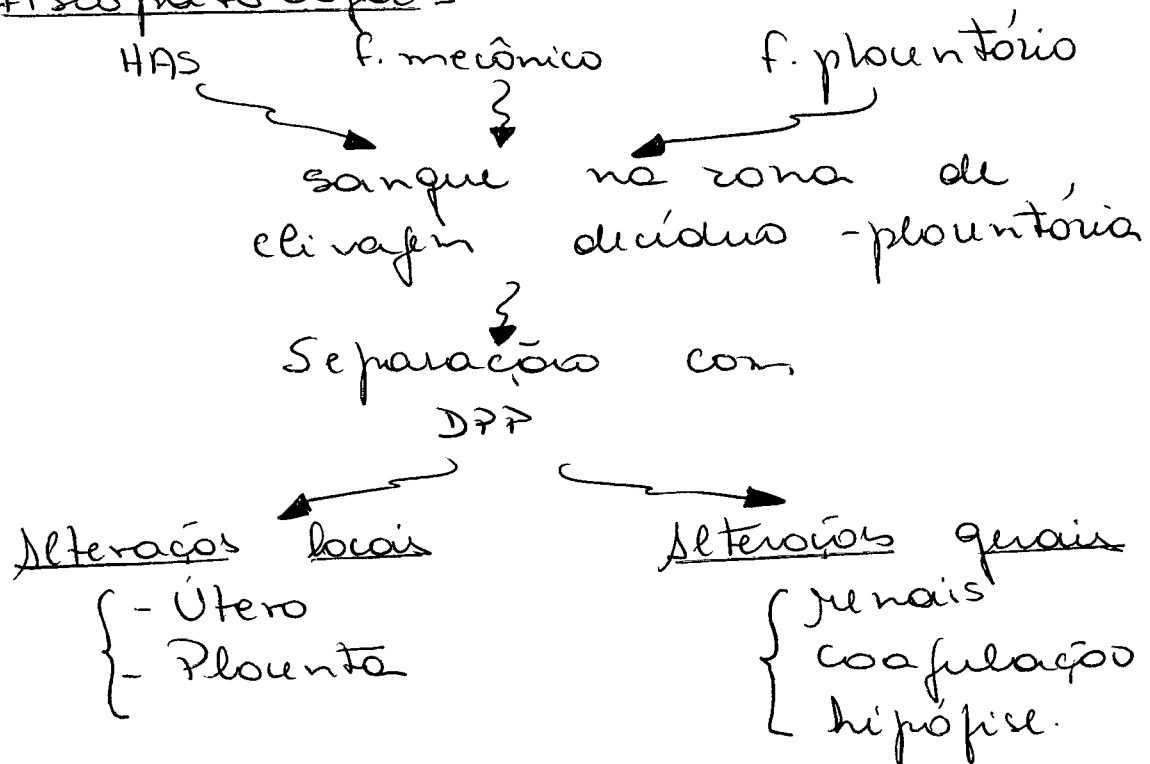 Fisiopatologia:
HAS f. mecânico f. placentário
sangue na zona de
clivagem decíduo-placentária
Separação com
DPP
Alteraçõs locais Alterações gerais
{ - Útero { renais
- Placenta coagulação
hipófise.